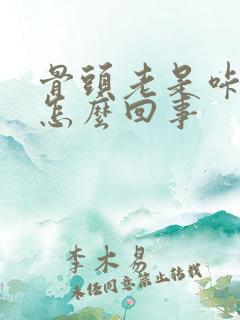 骨頭老是咔
怎麼回事
李木易
未經同意禁止轉載